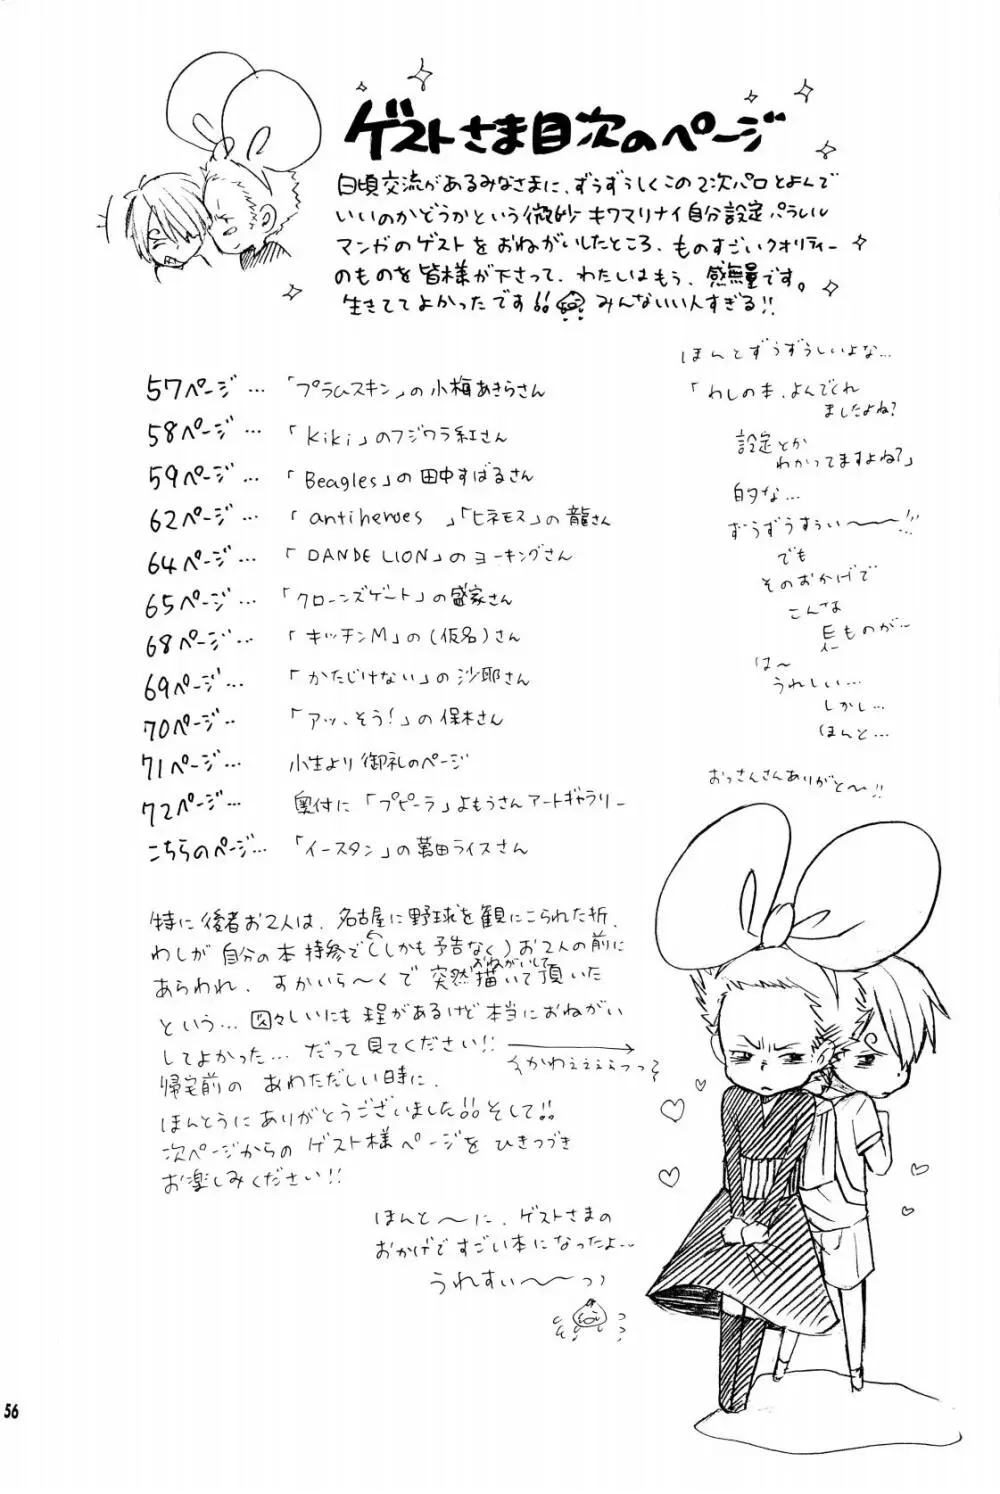 ゲストさま目次のページ
日頃交流があるみなさまに、ずうずうしくこの2次パロとよんで
いいのかどうかという微妙キワマリナイ自分設定パラレル
マンガのゲストをおねがいしたところ、ものすごいクオリティーの
ものを皆様が下さって、わたしはもう、感無量です。
生きててよかったです!! みんないい人すぎる!!
ほんとずうずうしいよな…
「わしの本、よんでくれ
ましたよね?
設定とか
わかってますよね?」
的な…
ずうずうすぅい〜〜!!!
でも
そのおかげで
こんな
巨ものが…
は〜
うれしい…
しかし…
ほんと…
おっさんさんありがと〜!!
57ページ… 「プラムスキン」の小梅あきらさん
58ページ… 「kiki」のフジワラ紅さん
59ページ… 「Beagles」の田中すばるさん
62ページ… 「antiheroes」「ヒネモス」の龍さん
64ページ… 「DANDELION」のヨーキングさん
65ページ… 「クローンズゲート」の盛家さん
68ページ… 「キッチンM」の(仮名)さん
69ページ… 「かたじけない」の沙耶さん
70ページ… 「アッ、そう!」の保木さん
71ページ… 小生より御礼のページ
72ページ… 奥付に「プピーラ」よもうさんアートギャラリー
こちらのページ… 「イースタン」の萬田ライスさん
特に後者お2人は、名古屋に野球を観にこられた折、
わしが自分の本持参で(しかも予告なく)お2人の前に
あらわれ、すかいら〜くで突然おねがいして描いて頂いた
という…図々しいにも程があるけど本当におねがい
してよかった…だって見てください!!
かわぇぇぇぇっっ
帰宅前のあわただしい時に、
ほんとうにありがとうございました!!そして!!
次ページからのゲスト様ページをひきつづき
お楽しみください!!
ほんと〜に、ゲストさまの
おかげですごい本になったよ…
うれすぃ〜〜っっ
56